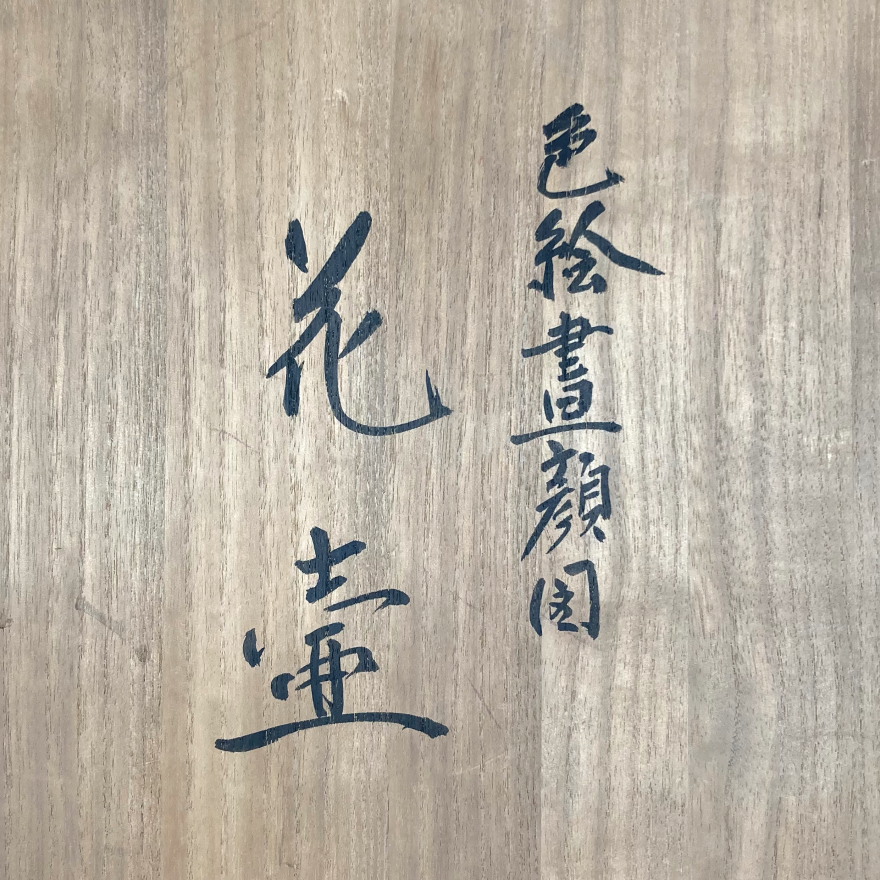 色絵晝顔図
花壷